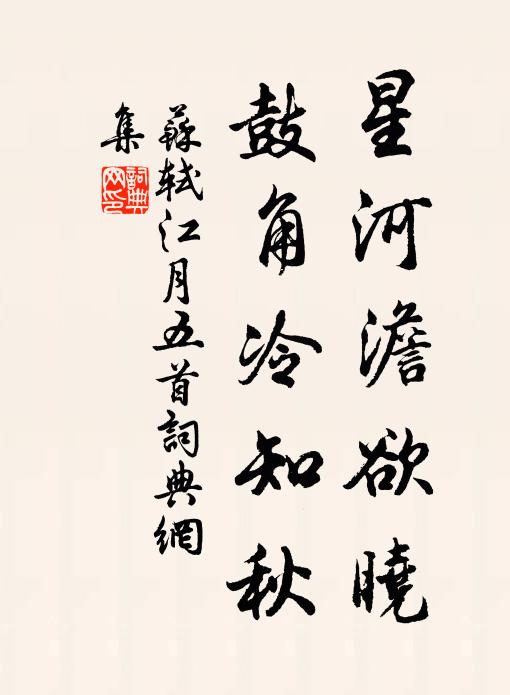 星河澹欲曉
鼓角冷知秋
蘇軾江月五首詞典網
集
詞典网印